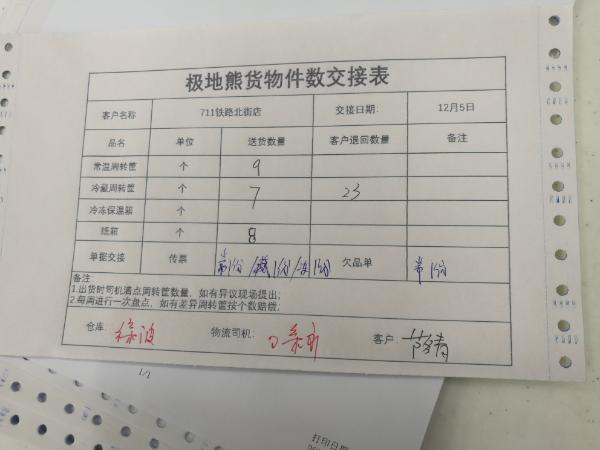 极地熊货物件数交接表
客户名称 711铁路北街店 交接日期: 12月5日
品名 单位 送货数量 客户退回数量 备注
常温周转筐 个 9
冷藏周转筐 个 7 23
冷冻保温箱 个
纸箱 个 8
单据交接 传票 常1份/藏1份/冻1份 欠品单 常1份
备注:
1.出货时司机清点周转筐数量，如有异议现场提出;
2.每周进行一次盘点，如有差异周转筐按个数赔偿;
仓库: 物流司机: 客户:
1/1
打印日期